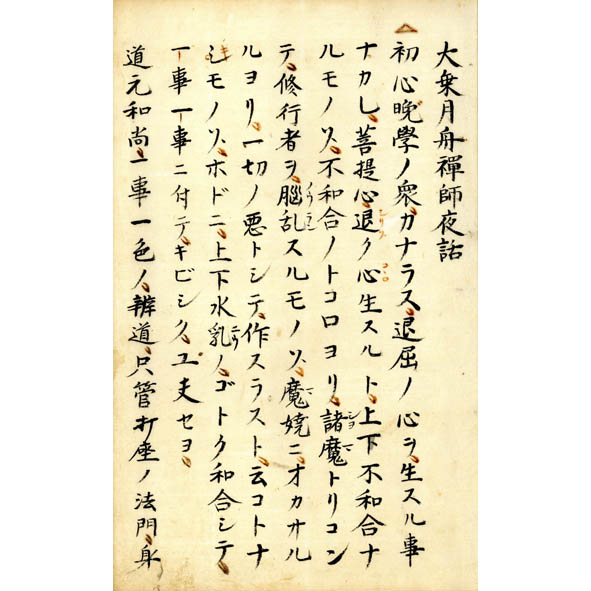 大乗月舟禪師夜話
初心晩學ノ衆、カナラス、退屈ノ心ヲ、生スル事
ナカレ、菩提心、退ク心生スルト、上下不和合ナ
ルモノソ、不和合ノトコロヨリ、諸魔トリコン
テ、修行者ヲ、腦乱スルモノソ、魔嬈ニ、オカサル
ルヨリ、一切ノ悪トシテ、作スラスト、云コトナ
シモノソ、ホドニ、上下水乳ノ、ゴトク和合シテ、
一事一事ニ付テ、キビシク、工夫セヨ、
道元和尚、一事一色ノ、辨道、只管打座ノ法門、身